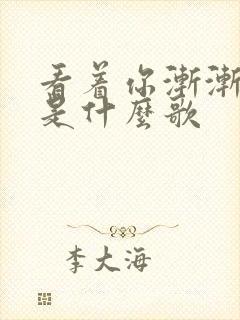 看着你漸漸
是什麼歌
李大海